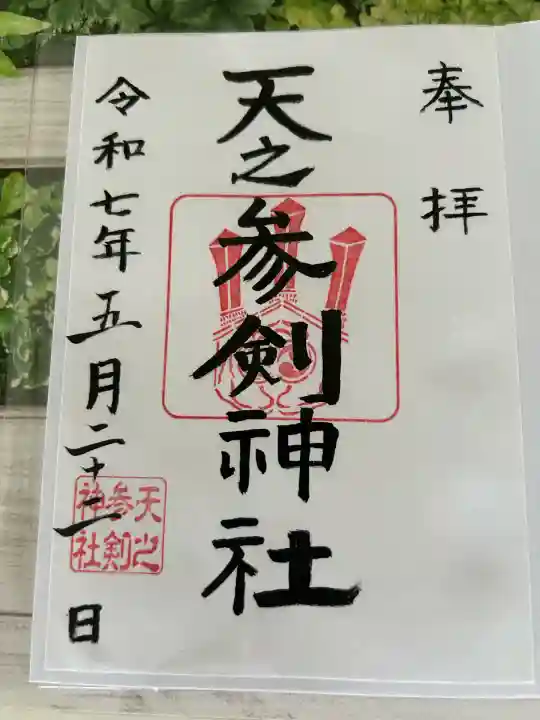 奉拝
天之参剣神社
令和七年五月二十二日
天之
参剣
神社